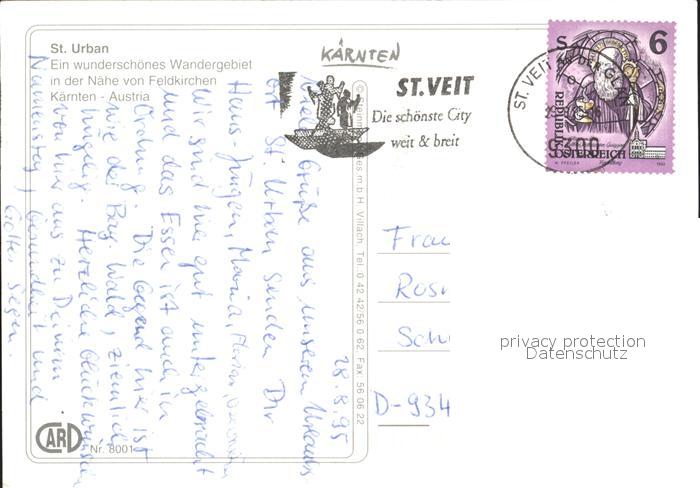 St. Urban
Ein wunderschönes Wandergebiet
in der Nähe von Feldkirchen
Kärnten - Austria
KÄRNTEN
ST. VEIT
Die schönste City
weit & breit
ST. VEIT AN DER
9300
6
REPUBLIK
ÖSTERREICH
28.8.95
Viele Grüße aus unserem Urlaubs
ort St. Urban senden Dir
Hans-Jürgen, Maria, Florian,
Wir sind hier gut untergebracht
und das Essen ist auch in
Ordng. Die Gegend hier ist
wie der Bay. Wald, ziemlich
hügelig. Herzliche Glückwünsche
von hier aus zu Deinem
Namenstag, Gesundheit und
Gottes Segen.
Villach, Tel. 0 42 42/56 0 62, Fax 56 06 22
Frau
Ros
Sch
D-934
privacy protection
Datenschutz
CARD
Nr. 8001